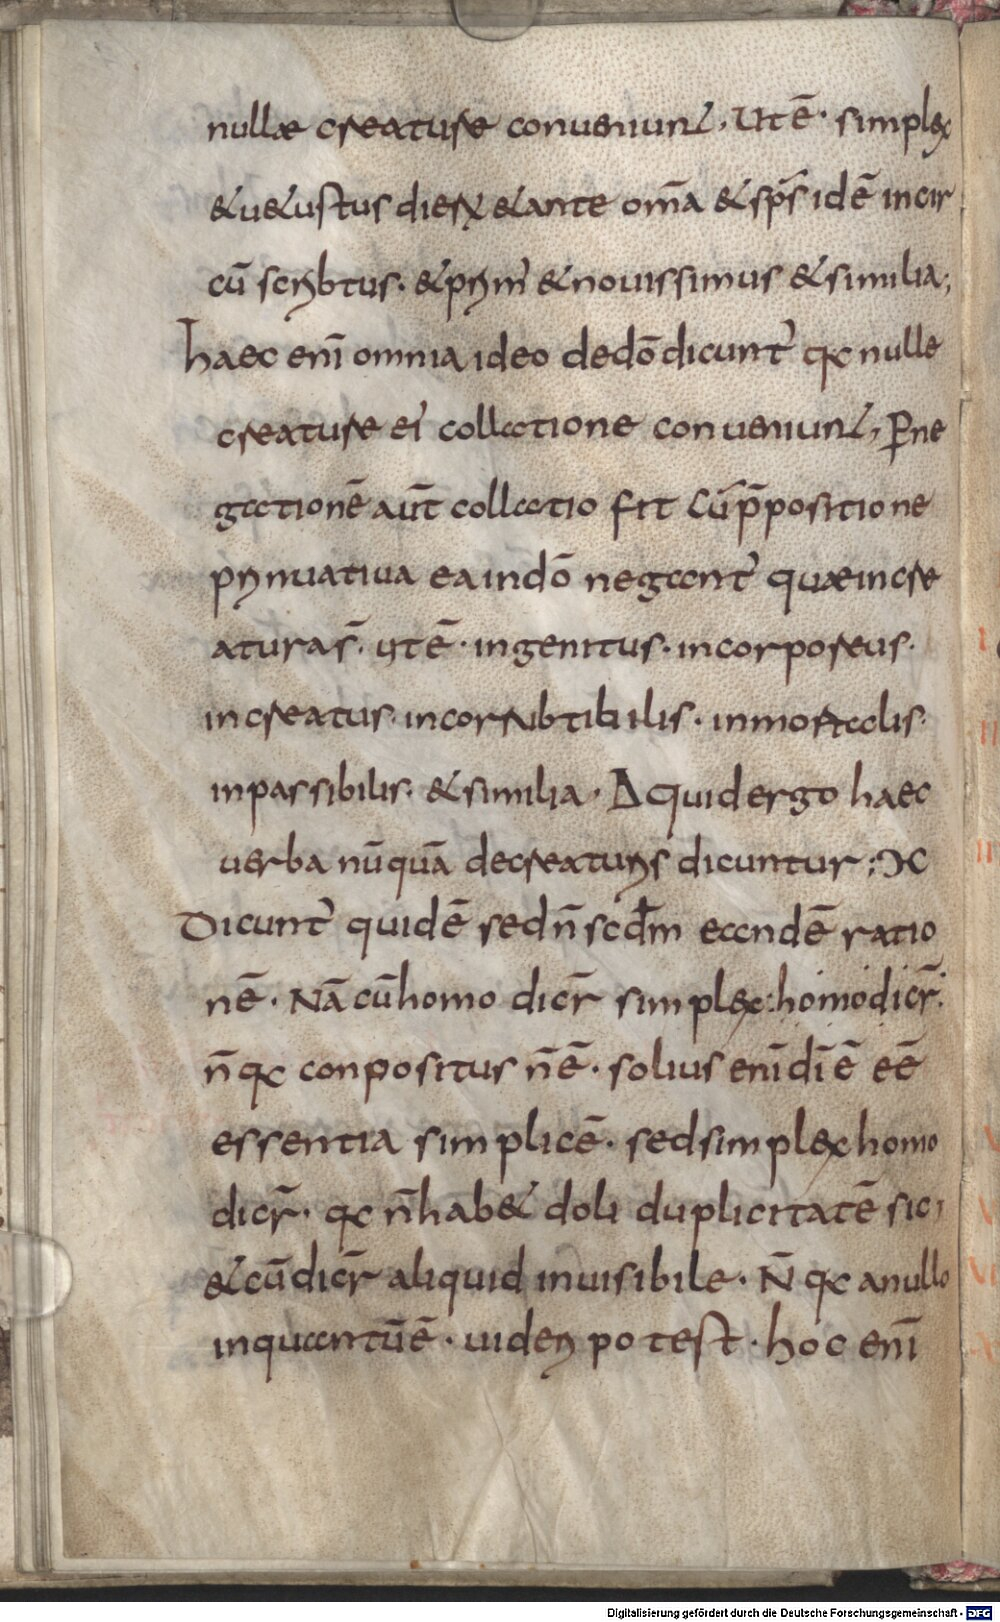 nullae creature conueniunt, Ut ē· simplex
&u&ustus dierū &ante om̄a &sp̄s idē incir
cū scribtus· &prim' &nouissimus &similia;
haec enī omnia ideo dedō dicunt' qc nulle
creature ei collatione conueniunt, P̱ ne
gationē aūt collatio fit cū p̄positione
priuatiua ea indō negant' quae incre
atura s̄· ut ē· ingenitus· incorporeus·
increatus· incorrubtibilis· inmortalis·
inpassibilis· &similia· Δ Quid ergo haec
uerba nūquā decreaturis dicuntur; M
Dicunt' quidē sed n̄ scdm̄ eandē ratio
nē· Nā cū homo dicr̄ simplex: homo dicr̄·
n̄ qc conpositus n̄ ē· solius enī dī ē eē
essentia simplicē· sed simplex homo
dicr̄· qc n̄ hab& doli duplicitatē sic;
&cū dicr̄ aliquid inuisibile· N̄ qc a nullo
inquantū ē· uideri potest· hoc enī
Digitalisierung gefördert durch die Deutsche Forschungsgemeinschaft - DFG